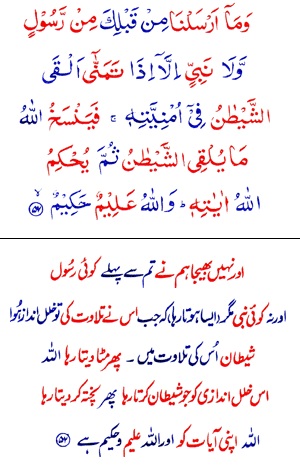 وَمَاۤ اَرۡسَلۡنَا مِنۡ قَبۡلِكَ مِنۡ رَّسُوۡلٍ
وَّلَا نَبِىٍّ اِلَّاۤ اِذَا تَمَنّٰٓى اَلۡقَى
الشَّيۡطٰنُ فِىۡۤ اُمۡنِيَّتِهٖ ‌ۚ فَيَنۡسَخُ اللّٰهُ
مَا يُلۡقِى الشَّيۡطٰنُ ثُمَّ يُحۡكِمُ
اللّٰهُ اٰيٰتِهٖ‌ ؕ وَاللّٰهُ عَلِيۡمٌ حَكِيۡمٌ ۙ‏ ﴿۵۲﴾
اور نہیں بھیجا ہم نے تم سے پہلے کوئی رسُول
اور نہ کوئی نبی مگر ایسا ہوتا رہا کہ جب اس نے تلاوت کی تو خلل انداز ہُوا
شیطان اُس کی تلاوت میں ۔ پھر مٹا دیتا رہا اللہ
اس خلل اندازی کو جو شیطان کرتا رہا پھر پختہ کردیتا رہا
اللہ اپنی آیات کو اور اللہ علیم و حکیم ہے ﴿۵۲﴾